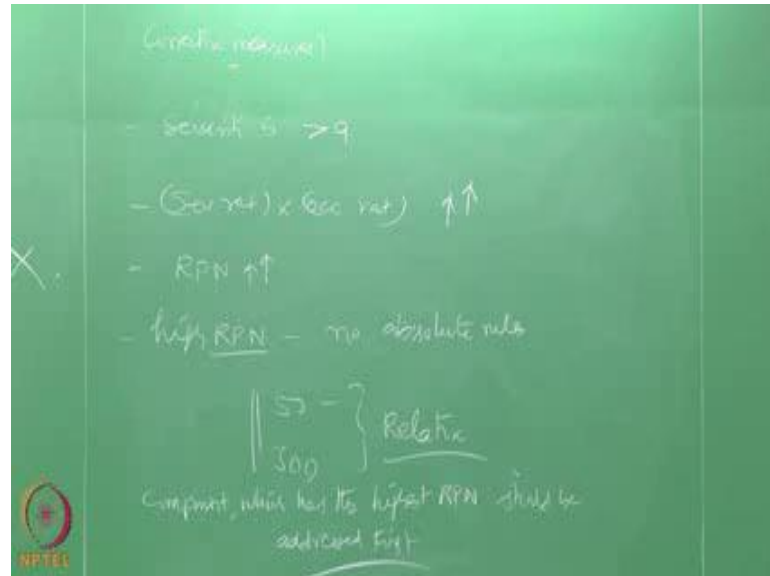 Corrective measures
- severity is > 9
- (Sev rat) x (occ rat) ↑↑
X.
- RPN ↑↑
- high RPN - no absolute rules
50 -
500
Relative
Component, which has the highest RPN should be
addressed first
NPTEL